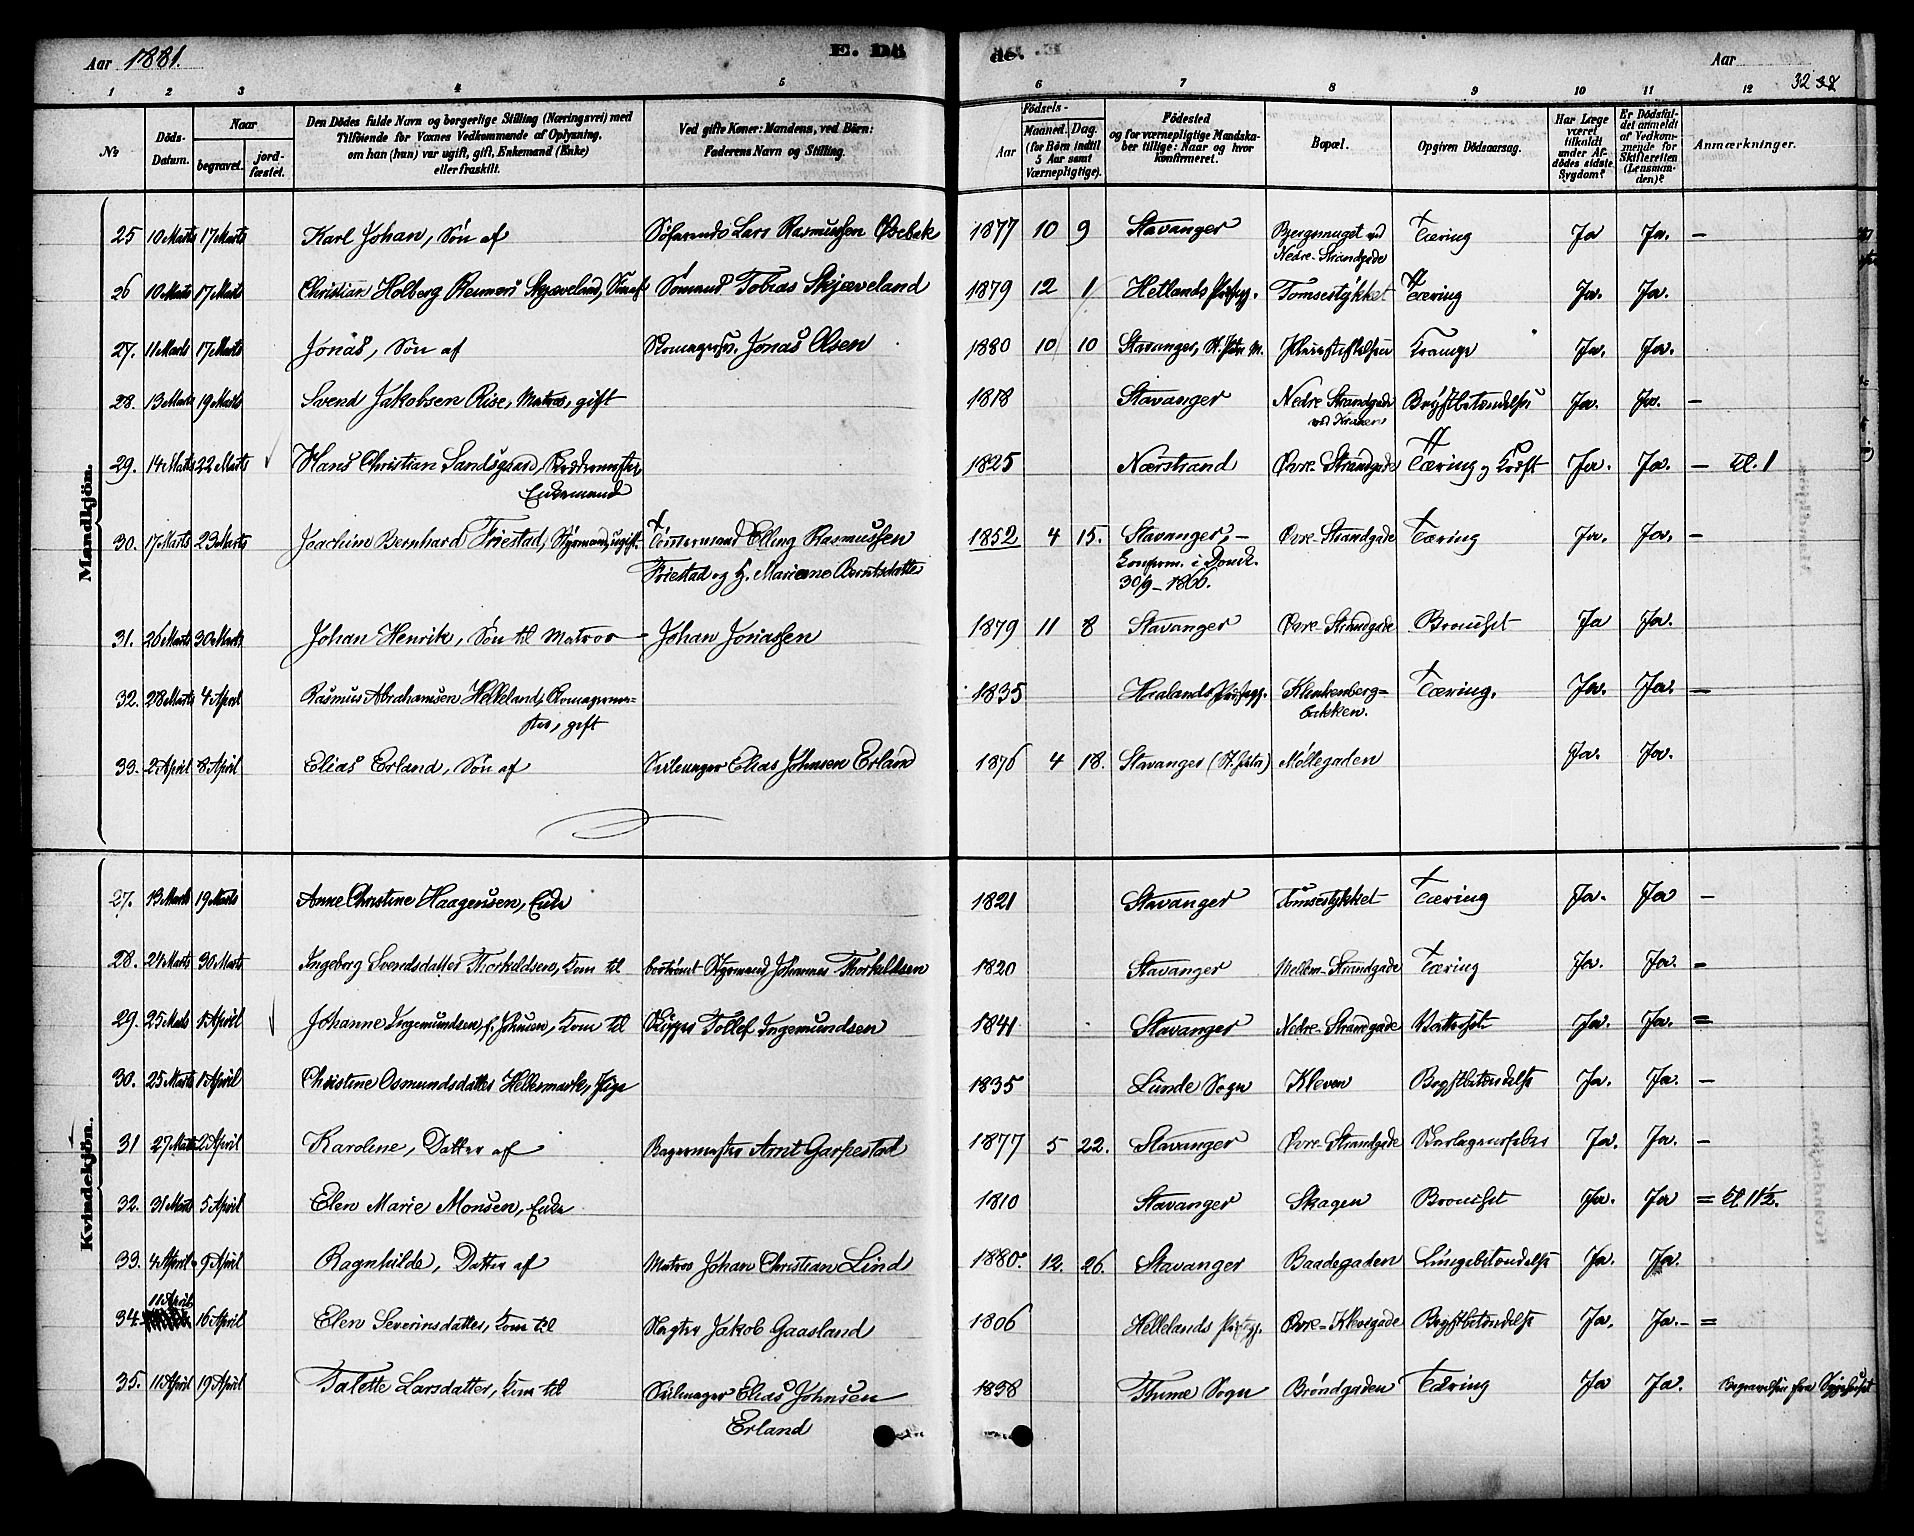 Aar 1881.
E. Dö
de.
Aar
32
1 2 3 4 5 6 7 8 9 10 11 12
No
Döds-Datum.
Naar
begravet.
jord-fæstet.
Den Dödes fulde Navn og borgerlige Stilling (Næringsvei) med
Tilföiende for Voxnes Vedkommende af Oplysning,
om han (hun) var ugift, gift, Enkemand (Enke)
eller fraskilt.
Ved gifte Koner: Mandens, ved Börn:
Faderens Navn og Stilling.
Födsels-
Aar
Maaned. Dag.
(for Börn indtil
5 Aar samt
Værnepligtige).
Födested
og for værnepligtige Mandska-
ber tillige: Naar og hvor
konfirmeret.
Bopæl.
Opgiven Dödsaarsag.
Har Læge
været
tilkaldt
under Af-
dödes sidste
Sygdom?
Er Dödsfal-
det anmeldt
af Vedkom-
mende for
Skifteretten
(Lensman-
den)?
Anmærkninger.
Mandkjön.
25 10 Marts 17 Marts Karl Johan, Søn af Søfarende Lars Rasmussen Østebek 1877 10 9 Stavanger Bergsmuget ved Tæring Ja Ja. —
Nedre-Strandgade
26 10 Marts 17 Marts Christian Holberg Skjæveland, Søn af Sømand Tobias Skjæveland 1879 12 1 Hetlands Tomsestykket Tæring Ja. Ja.
27. 11 Marts 17 Marts Jonas, Søn af Jonas Olsen 1880 10 10 Stavanger, Krampe Ja. Ja.
28. 13 Marts 19 Marts Svend Jakobsen Rise, Matros, gift 1818 Stavanger Nedre Strandgade Brystbetændelse Ja. Ja. —
29. 14 Marts 22 Marts Hans Christian Sandsgaard, Enkemand 1825 Nærstrand Øvre-Strandgade Tæring og Kræft Ja. Ja. — Kl. 1
30. 17 Marts 23 Marts Joachim Bernhard Friestad, Styrmand, ugift. Tømmermand Elling Rasmussen 1852 4 15. Stavanger, — Øvre-Strandgade Tæring Ja. Ja. —
Friestad og H. Mariane Berntsdatter Konfirm. i Domk.
30/9 – 1866.
31. 26 Marts 30 Marts Johan Henrik, Søn til Matros — Johan Jonassen 1879 11 8 Stavanger Øvre-Strandgade Bronchit Ja Ja.
32. 28 Marts 4 April Rasmus Abrahamsen Helleland, Skomagerme- 1835 Haalands Klinkenberg- Tæring. Ja. Ja. —
ster, gift bakken.
33. 2 April 8 April Elias Erland, Søn af Seilmager Elias Johnsen Erland 1876 4 18. Stavanger (St. Petri) Møllegaden Ja. Ja.
Kvindekjön.
27. 13 Marts 19 Marts Anne Christine Haagensen, Enke 1821 Stavanger Tomsestykket Tæring Ja. Ja —
28. 24 Marts 30 Marts Ingeborg Svendsdatter Thorkildsen, Kone til bortrömt Styrmand Johannes Thorkildsen 1820 Stavanger Mellem-Strandgade Tæring Ja. Ja. =
29. 25 Marts 1 April Johanne Ingemundsen, f. Johnsen, Kone til Skipper Tollef Ingemundsen 1841 Stavanger Nedre-Strandgade Vattersot Ja. Ja. =
30. 25 Marts 1 April Christine Osmundsdatter Hellesmark, Pige 1835 Lunde Sogn Kleven Brystbetændelse Ja. Ja. —
31 27 Marts 2 April Karoline, Datter af Bagermester Arnt Garpestad 1877 5 22. Stavanger Øvre-Strandgade Skarlagensfeber Ja. Ja. —
32. 31 Marts 5 April Elen Marie Monsen, Enke 1810 Stavanger Skagen Bronchit Ja. Ja = Kl. 11½.
33. 4 April 9 April Ragnhilde, Datter af Matros Johan Christian Lind 1880. 12. 26. Stavanger Baadegaden Lungebetændelse Ja. Ja.
34. 11 April 16 April Elen Severinsdatter, Kone til Slagter Jakob Gaasland 1806 Hellelands Øvre-Klevegade Brystbetændelse Ja. Ja. — =
35. 11 April 19 April Talette Larsdatter, Kone til Seilmager Elias Johnsen 1858 Thime Sogn Brøndgaden Tæring Ja Ja. Begravelsen fra Sygehuset
Erland